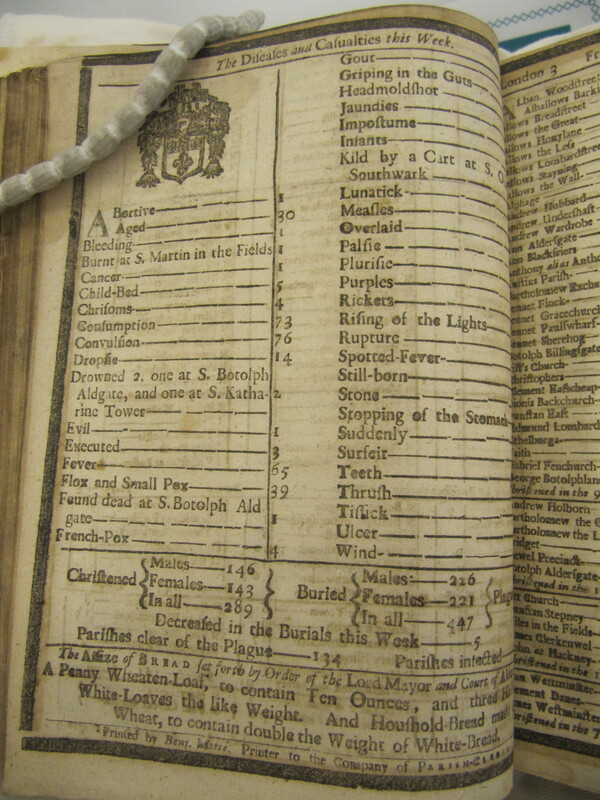 The Diſeaſes and Caſualties this Week.
ABortive 1
Aged 30
Bleeding 1
Burnt at S. Martin in the Fields 1
Cancer 1
Child-Bed 5
Chriſoms 4
Conſumption 73
Convulſion 76
Dropſie 14
Drowned 2. one at S. Botolph
Aldgate, and one at S. Katha-
rine Tower 2
Evil 1
Executed 3
Fever 65
Flox and Small Pox 39
Found dead at S. Botolph Ald
gate 1
French-Pox 4
Gout
Griping in the Guts
Headmoldſhot
Jaundies
Impoſtume
Infants
Kild by a Cart at S. O
Southwark
Lunatick
Meaſles
Overlaid
Palſie
Pluriſie
Purples
Rickets
Riſing of the Lights
Rupture
Spotted-Fever
Still-born
Stone
Stopping of the Stomach
Suddenly
Surfeit
Teeth
Thruſh
Tiſſick
Ulcer
Wind
Chriſtened { Males 146
Females 143
In all 289 }
Buried { Males 226
Females 221
In all 447 } Plag
Decreaſed in the Burials this Week 5
Pariſhes clear of the Plague 134 Pariſhes infected
The Aſſize of BREAD ſet forth by Order of the Lord Mayor and Court of
A Penny Wheaten-Loaf, to contain Ten Ounces, and three
White-Loaves the like Weight. And Houſhold-Bread made
Wheat, to contain double the Weight of White-Bread.
Printed by Printer to the Company of PARISH-
London 3 Fr
ALban Woodſtree
Alhallows Barki
llows Breadſtreet
llows the Great
llows Honylane
llows the Leſs
llows Lombardſtree
llows Stayning
llows the Wall
lphage
ndrew Hubbard
ndrew Underſhaft
ndrew Wardrobe
nn Alderſgate
nn Blackfriers
nthony alias Antho
uſtins Pariſh
artholomew Excha
ennet Finck
ennet Gracechurch
ennet Paulſwharf
ennet Sherehog
otolph Billingſgate
Chriſtophers
lement Eaſtcheap
ionis Backchurch
unſtan Eaſt
dmund Lombard
thelburga
aith
abriel Fenchurch
eorge Botolphlane
briſtened in the 9
ndrew Holborn
artholomew the G
artholomew the L
ridget
ewel Precinct
otolph Alderſgate
briſtened in the
Church
nſtan Stepney
iles in the Fields
mes Clerkenwel
ohn at Hackney
briſtened in the
nn Weſtminſter
ement Danes
mes Weſtminſter
briſtened in the 7